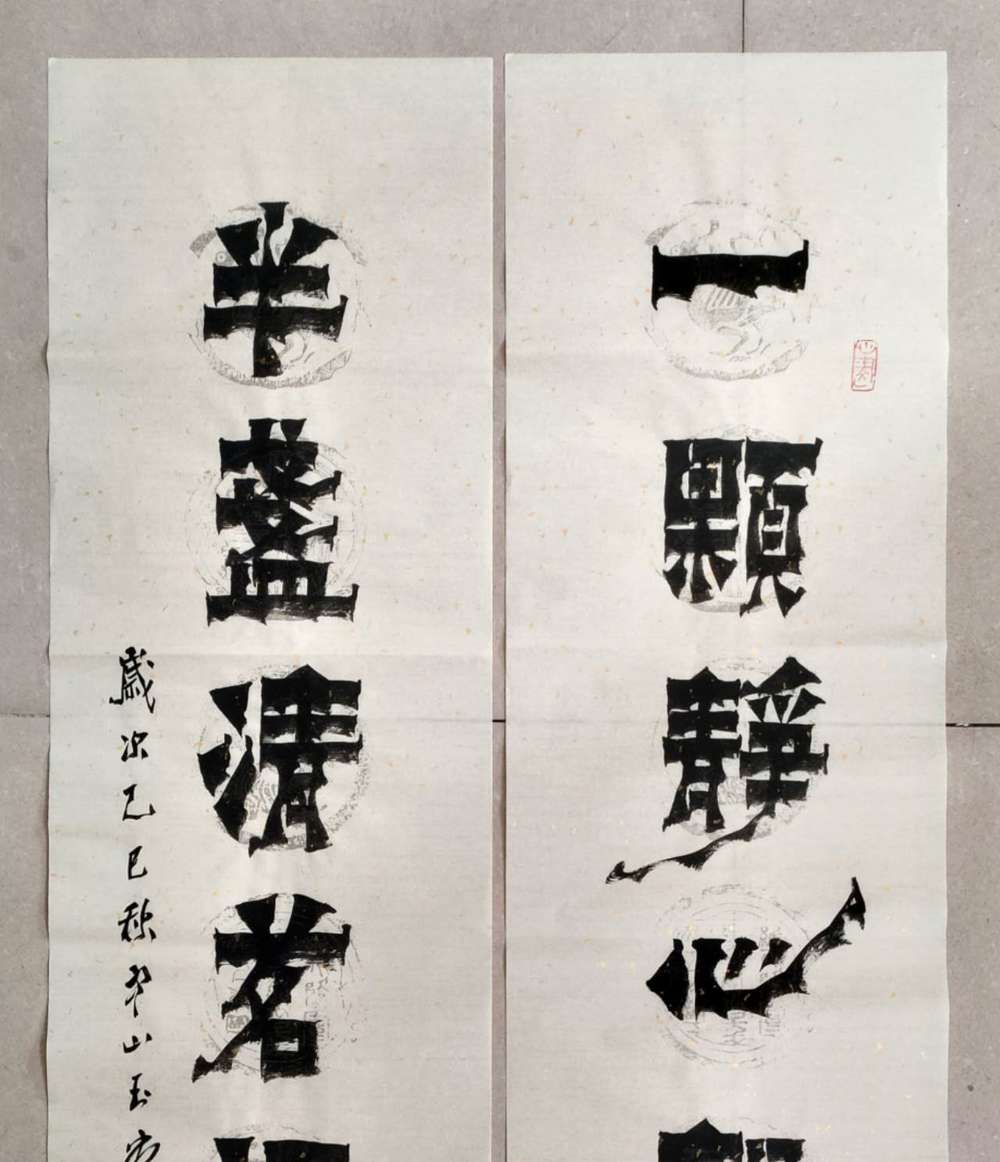 一顆靜心
半盞清茗
歲次乙巳秋
山玉